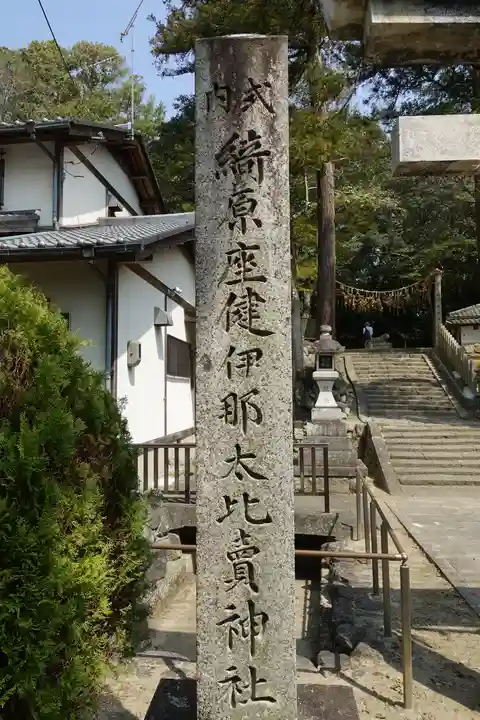 式内
綺原座健伊那太比賣神社